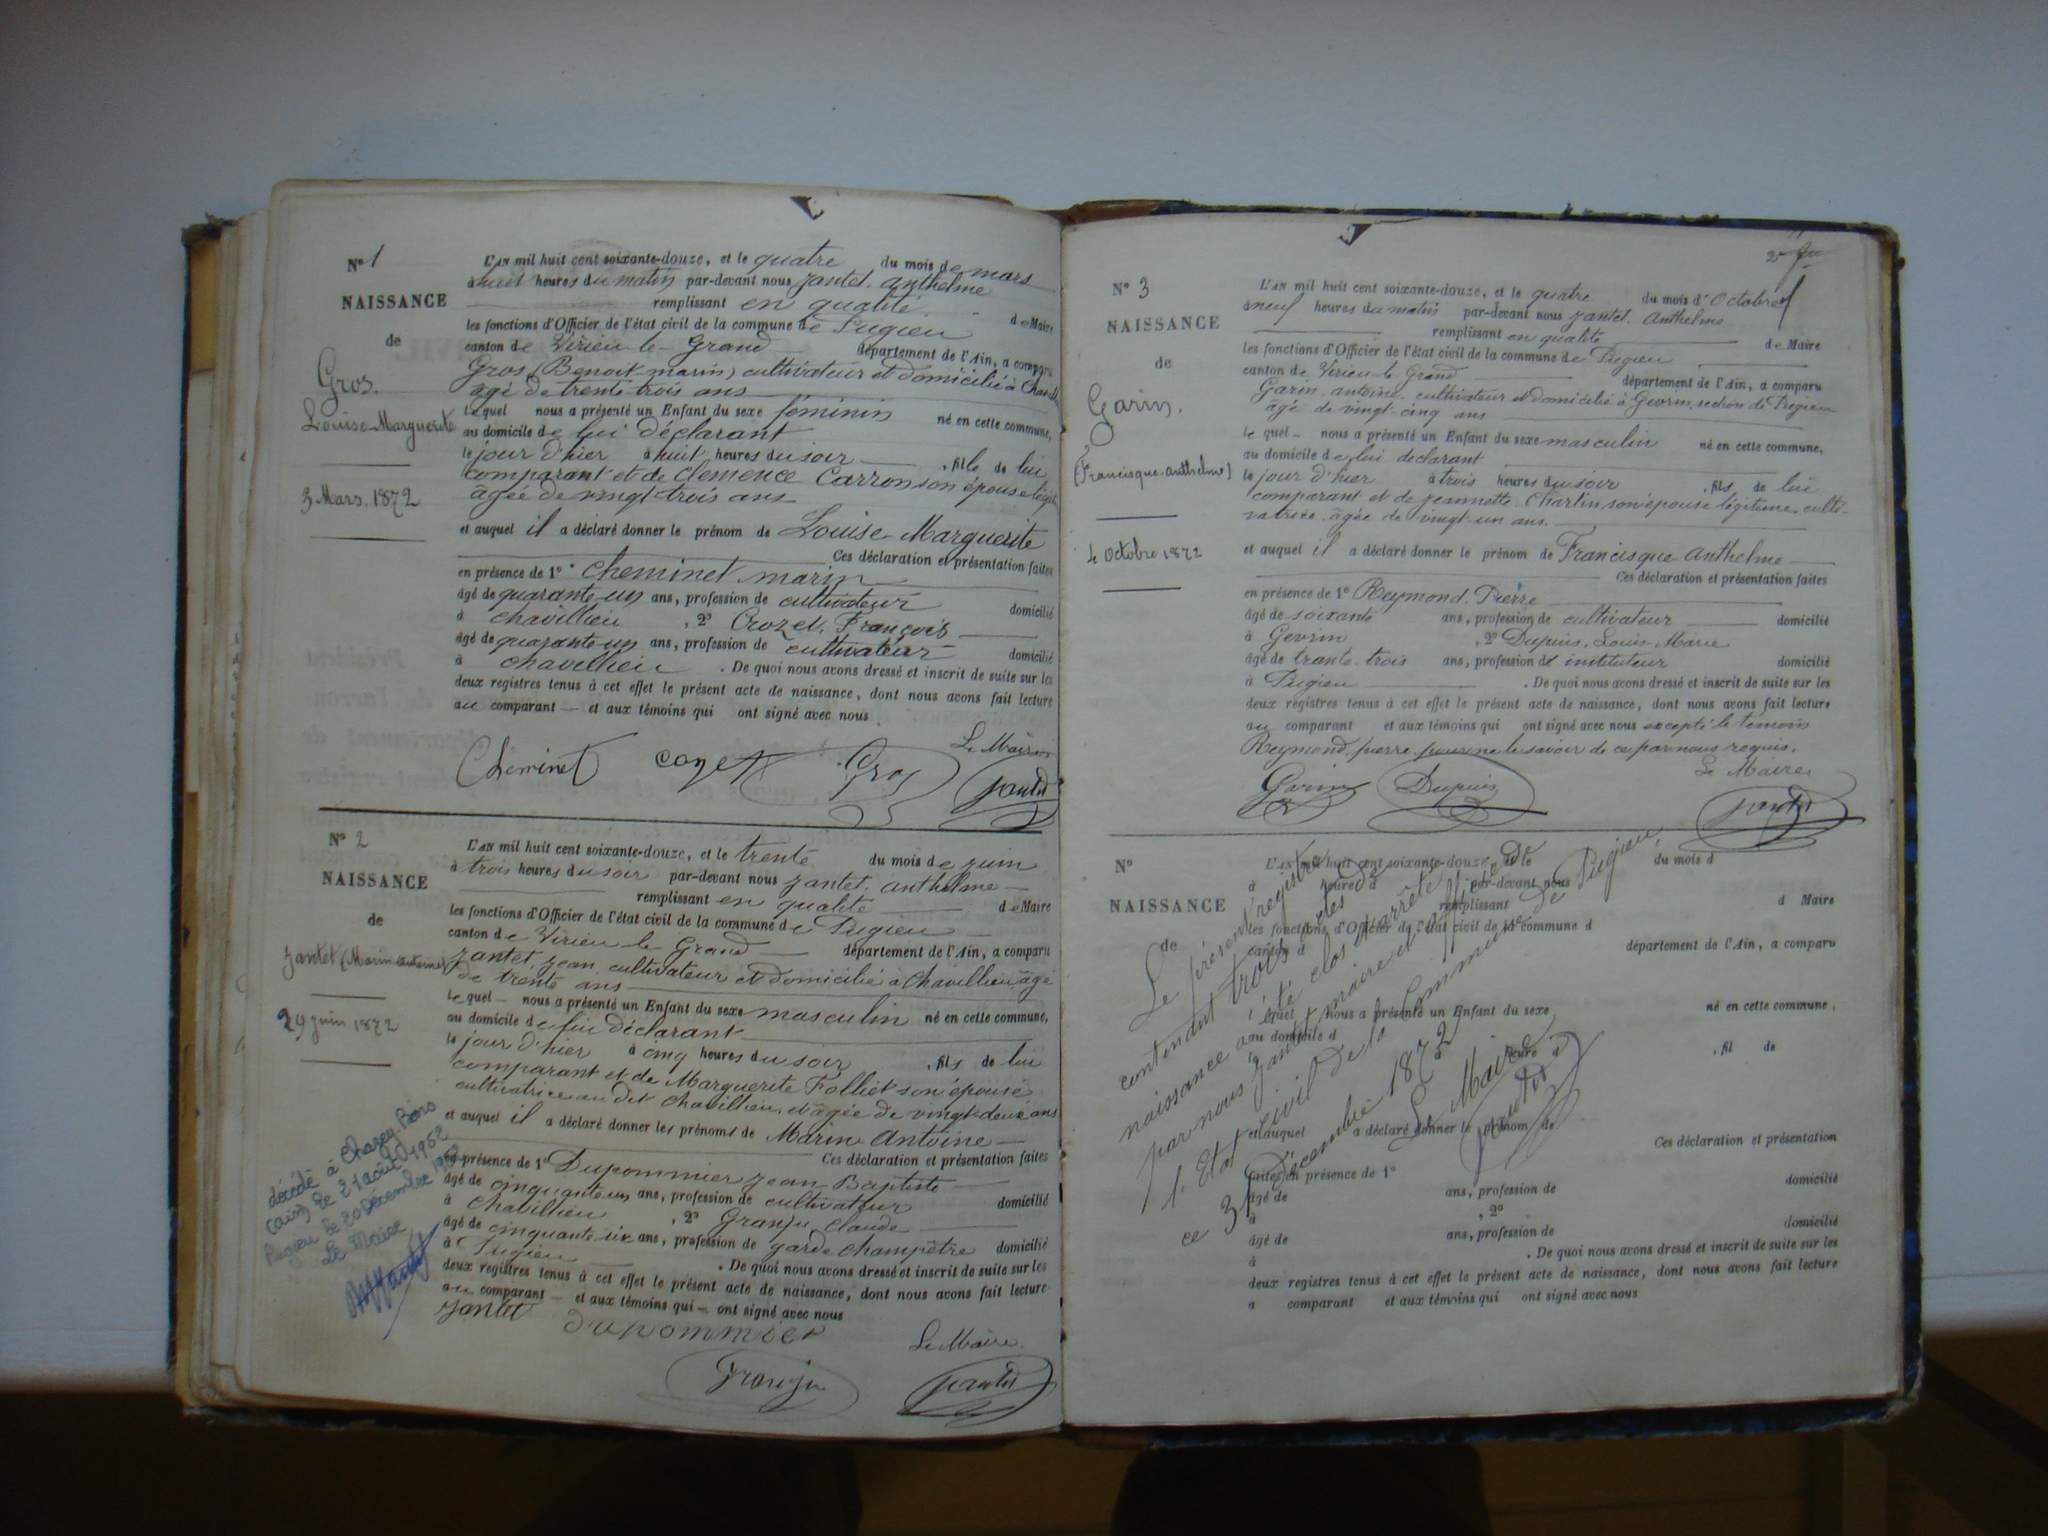 N° 1
NAISSANCE
de
Gros.
Louise-Marguerite
3 Mars. 1872
L'AN mil huit cent soixante-douze, et le quatre du mois de mars
à huit heures du matin par-devant nous Jantet. Anthelme
remplissant en qualité de Maire
les fonctions d'Officier de l'état civil de la commune de Pugieu
canton de Virieu-le-Grand département de l'Ain, a comparu
Gros (Benoit-marin) cultivateur et domicilié à
âgé de trente trois ans
lequel nous a présenté un Enfant du sexe féminin né en cette commune,
au domicile de lui déclarant
le jour d'hier à huit heures du soir , fille de lui
comparant et de Clemence Carron son épouse
âgée de vingt-trois ans
et auquel il a déclaré donner le prénom de Louise Marguerite
Ces déclaration et présentation faites
en présence de 1° Cheminet marin
âgé de quarante-un ans, profession de cultivateur domicilié
à chavillieu , 2° Crozet, François
âgé de quarante-un ans, profession de cultivateur domicilié
à chavillieu . De quoi nous avons dressé et inscrit de suite sur les
deux registres tenus à cet effet le présent acte de naissance, dont nous avons fait lecture
au comparant et aux témoins qui ont signé avec nous
Le Maire
Cheminet Gros Jantet
N° 2
NAISSANCE
de
Jantet (Marin-antoine)
29 juin 1872
décédé à Chazey-Bons
(Ain) le 21 août 1952
Pugieu le 20 Décembre
Le Maire
L'AN mil huit cent soixante-douze, et le trente du mois de juin
à trois heures du soir par-devant nous Jantet. Anthelme
remplissant en qualité de Maire
les fonctions d'Officier de l'état civil de la commune de Pugieu
canton de Virieu le Grand département de l'Ain, a comparu
Jantet Jean cultivateur et domicilié à Chavillieu âgé
de trente ans
lequel nous a présenté un Enfant du sexe masculin né en cette commune,
au domicile de lui déclarant
le jour d'hier à cinq heures du soir , fils de lui
comparant et de Marguerite Folliet son épouse
cultivatrice au dit Chavillieu, et âgée de vingt-deux ans
et auquel il a déclaré donner les prénoms de Marin Antoine
Ces déclaration et présentation faites
en présence de 1° Dupommier Jean-Baptiste
âgé de cinquante un ans, profession de cultivateur domicilié
à Chavillieu , 2° Granju Claude
âgé de cinquante-six ans, profession de garde champêtre domicilié
à Pugieu . De quoi nous avons dressé et inscrit de suite sur les
deux registres tenus à cet effet le présent acte de naissance, dont nous avons fait lecture
au comparant et aux témoins qui ont signé avec nous
Jantet dupommier Le Maire.
Granju Jantet
N° 3
NAISSANCE
de
Garin.
(Francisque-anthelme)
4 Octobre 1872
L'AN mil huit cent soixante-douze, et le quatre du mois d'Octobre
à neuf heures du matin par-devant nous Jantet. Anthelme
remplissant en qualité de Maire
les fonctions d'Officier de l'état civil de la commune de Pugieu
canton de Virieu-le Grand département de l'Ain, a comparu
Garin antoine cultivateur et domicilié à Gevrin, section de Pugieu
âgé de vingt-cinq ans
lequel nous a présenté un Enfant du sexe masculin né en cette commune,
au domicile de lui declarant
le jour d'hier à trois heures du soir , fils de lui
comparant et de Jeannette Charlin son épouse légitime, culti-
vatrice, âgée de vingt-un ans.
et auquel il a déclaré donner le prénom de Francisque Anthelme
Ces déclaration et présentation faites
en présence de 1° Reymond. Pierre
âgé de soixante ans, profession de cultivateur domicilié
à Gevrin , 2° Dupuis, Louis Marie
âgé de trante-trois ans, profession d instituteur domicilié
à Pugieu . De quoi nous avons dressé et inscrit de suite sur les
deux registres tenus à cet effet le présent acte de naissance, dont nous avons fait lecture
au comparant et aux témoins qui ont signé avec nous excepté le temoin
Reymond. pierre pour ne le savoir de ce par nous requis.
Le Maire
Garin Dupuis Jantet
N°
NAISSANCE
de
L'AN mil huit cent soixante-douze, et le du mois d
à heure d par-devant nous
remplissant d Maire
les fonctions d'Officier de l'état civil de la commune d
canton d département de l'Ain, a comparu
lequel nous a présenté un Enfant du sexe né en cette commune,
au domicile d
le à heure d , fil de
et auquel a déclaré donner le prénom de
Ces déclaration et présentation
faites en présence de 1°
âgé de ans, profession de domicilié
à , 2°
âgé de ans, profession de domicilié
à . De quoi nous avons dressé et inscrit de suite sur les
deux registres tenus à cet effet le présent acte de naissance, dont nous avons fait lecture
a comparant et aux témoins qui ont signé avec nous
Le présent registre
contenant trois actes de
naissance a été clos et arrêté
par nous Jantet maire et officier de
l'Etat civil de la Commune de Pugieu,
ce 31 Décembre 1872
Le Maire
Jantet